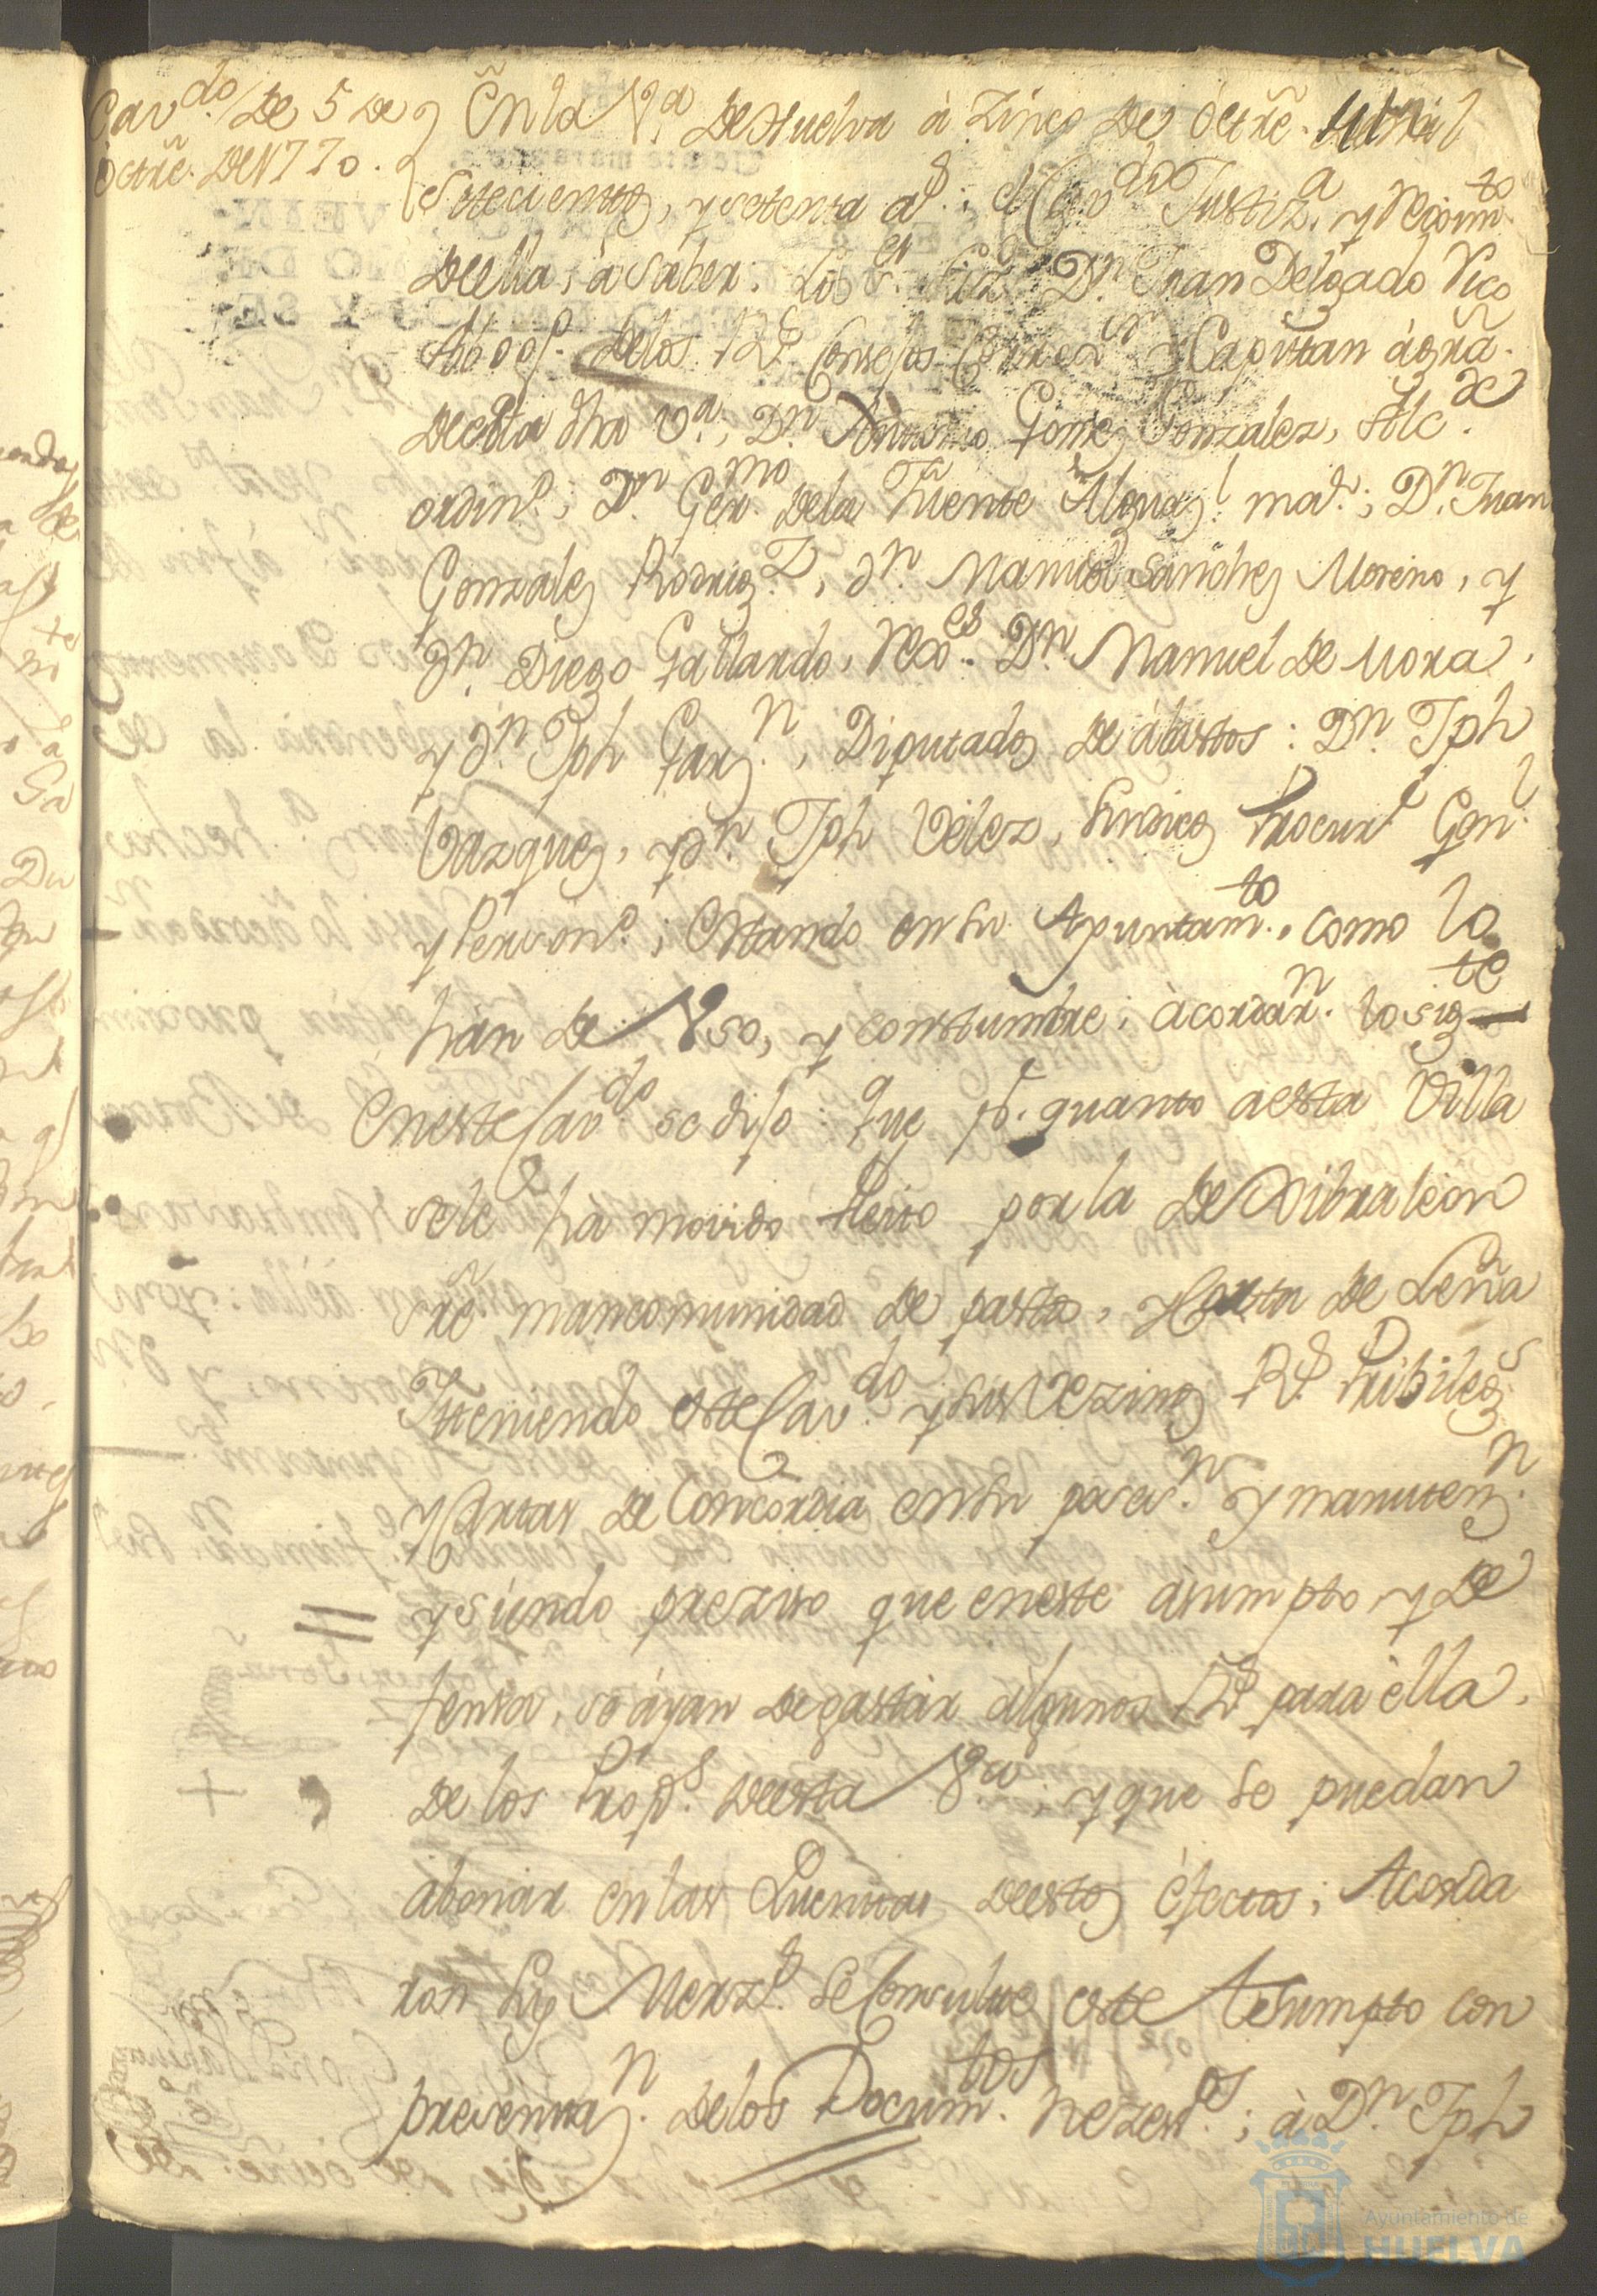 Cav.do De 5 de
Octre. De 1770.
En la V.a De Huelva à Zinco De Octre. de mil
Setecientos, y setenta as.; el Cav.do Justiz.a y Reximto.
De ella, à saber: Los S.es Liz.do D.n Juan Delgado Vico
Abog.do Delos R.s Consejos Correx.or y Capitan àgrã.
De esta dha V.a, D.n Antonio Gomez Gonzalez, Alc.de
ordin.o; D.n Ger.mo Dela Fuente Alguaz.l ma.r; D.n Juan
Gonzalez Rodrig.z, d.n Manuel Sanchez Moreno, y
d.n Diego Gallardo, Rexo.es D.n Manuel De Mora,
y d.n Jph Garz.n, Diputados De abastos: D.n Jph
Vazquez, y d.n Jph Velez, Sindicos Procur.l Gen.l
y Person.o; Estando en su Ayuntam.to, como lo
han de Vso, y constumbre; àcordar.n lo sig.te
En este Cav.do se dijo: Que p.r quanto a esta Villa
se le hà movido Pleito por la De Xibraleon
sre. mancomunidad de pastos, y Corta de Leña
Y teniendo este Cav.do y sus Vezinos R.s Pribileg.s
y Cartas de Concordia en su poses.n y manuten.n
y siendo prezisso que en este asumpto, y De
fensa, se àyan de gastar algunos R.s para èlla,
De los Prop.s De esta V.a; y que se puedan
abonar en las Quentas De estos èfectos; Acorda
ron Sus Merz.s Se Consulte este Asumpto con
presentaz.n Delos Docum.tos Nezes.os; à D.n Jph
Ayuntamiento de
HUELVA